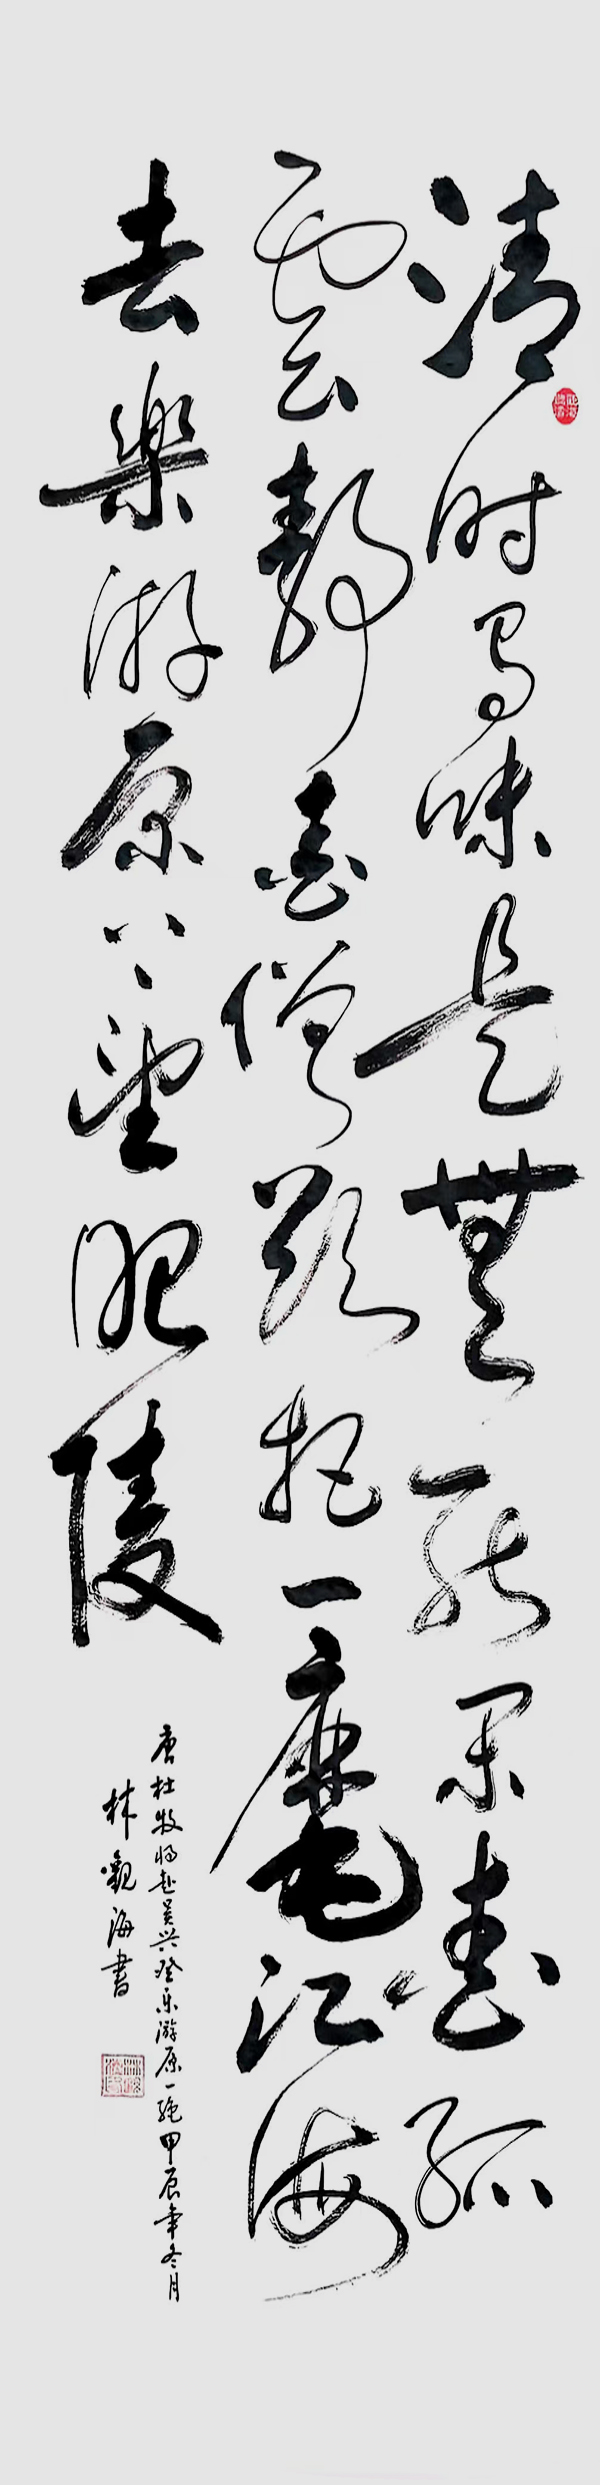 清时有味是無能闲爱孤
雲静爱僧欲把一麾江海
去樂游原上望昭陵
唐杜牧将赴吴兴登乐游原一绝甲辰年冬月
林觀海書